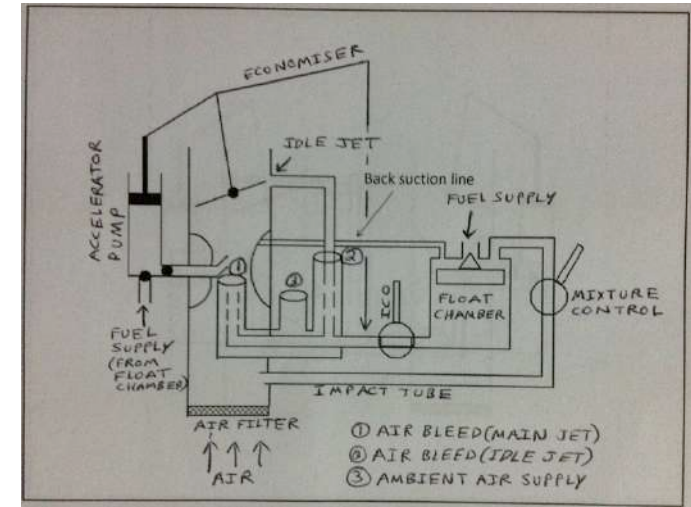 ECONOMISER
IDLE JET
Back suction line
FUEL SUPPLY
ACCELERATOR
PUMP
①
③
②
ICO
FLOAT
CHAMBER
MIXTURE
CONTROL
FUEL
SUPPLY
(FROM
FLOAT
CHAMBER)
IMPACT TUBE
AIR FILTER
AIR
① AIR BLEED (MAIN JET)
② AIR BLEED (IDLE JET)
③ AMBIENT AIR SUPPLY